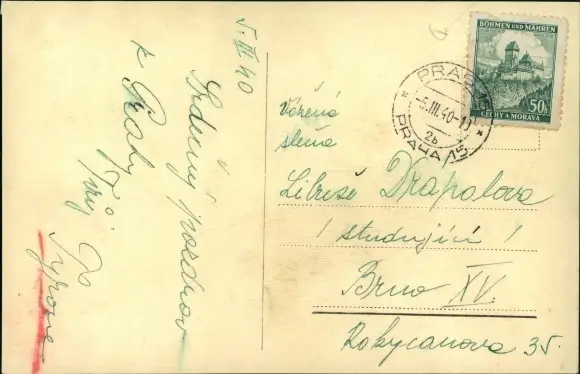 5. III 40
Srdečný pozdrav
z Prahy
Tvůj
BÖHMEN UND MÄHREN
50h
ČECHY A MORAVA
PRAG 15
-5.III.40-11
2b
PRAHA 15
Vážená
slečna
Libuše Drapalova
! studující !
Brno XV.
Rokycanova 35.